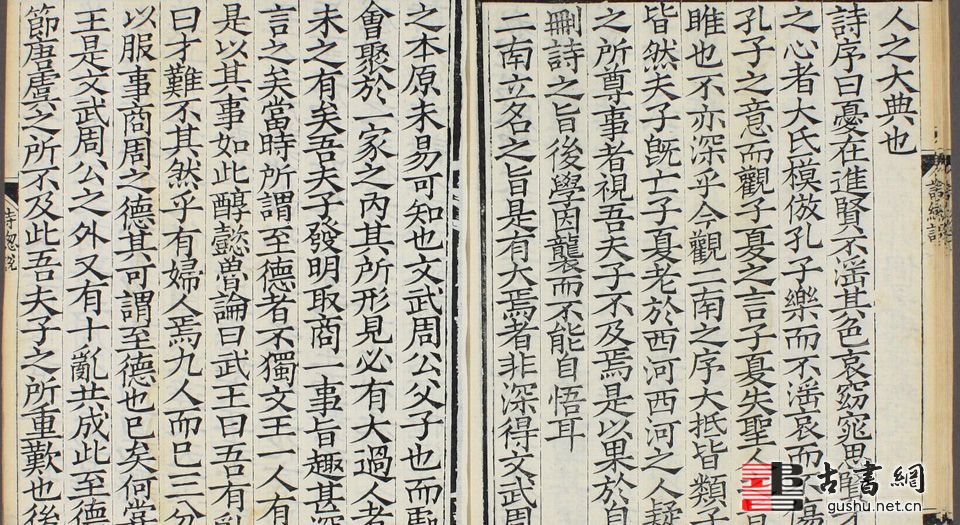 人之大典也
詩序曰憂在進賢不淫其色哀窈窕思賢
之心者大氏模倣孔子樂而不淫哀而
孔子之意而觀子夏之言子夏失聖人
雎也不亦深乎今觀二南之序大抵皆類子
皆然夫子旣亡子夏老於西河西河之人疑
之所尊事者視吾夫子不及焉是以果於自
刪詩之旨後學因襲而不能自悟耳
二南立名之旨是有大焉者非深得文武周
之本原未易可知也文武周公父子也而聖
會聚於一家之內其所形見必有大過人者
未之有矣吾夫子發明取商一事旨趣甚深
言之矣當時所謂至德者不獨文王一人有
是以其事如此醇懿魯論曰武王曰吾有亂
曰才難不其然乎有婦人焉九人而已三分
以服事商周之德其可謂至德也已矣何嘗
王是文武周公之外又有十亂共成此至德
節唐虞之所不及此吾夫子之所重歎也後
詩總說
古書網
gushu.net.cn